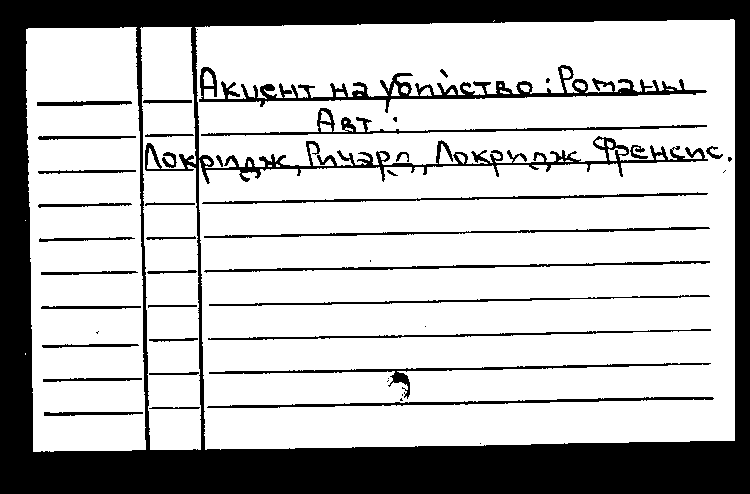 Акцент на убийство: Романы
Авт.:
Локридж, Ричард, Локридж, Френсис.